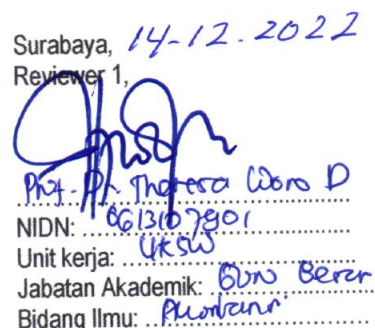 Surabaya, 14-12-2022
Reviewer 1,
Prof. Dr. Theresa Woro D
NIDN: 0613107901
Unit kerja: UKSW
Jabatan Akademik: Guru Besar
Bidang Ilmu: